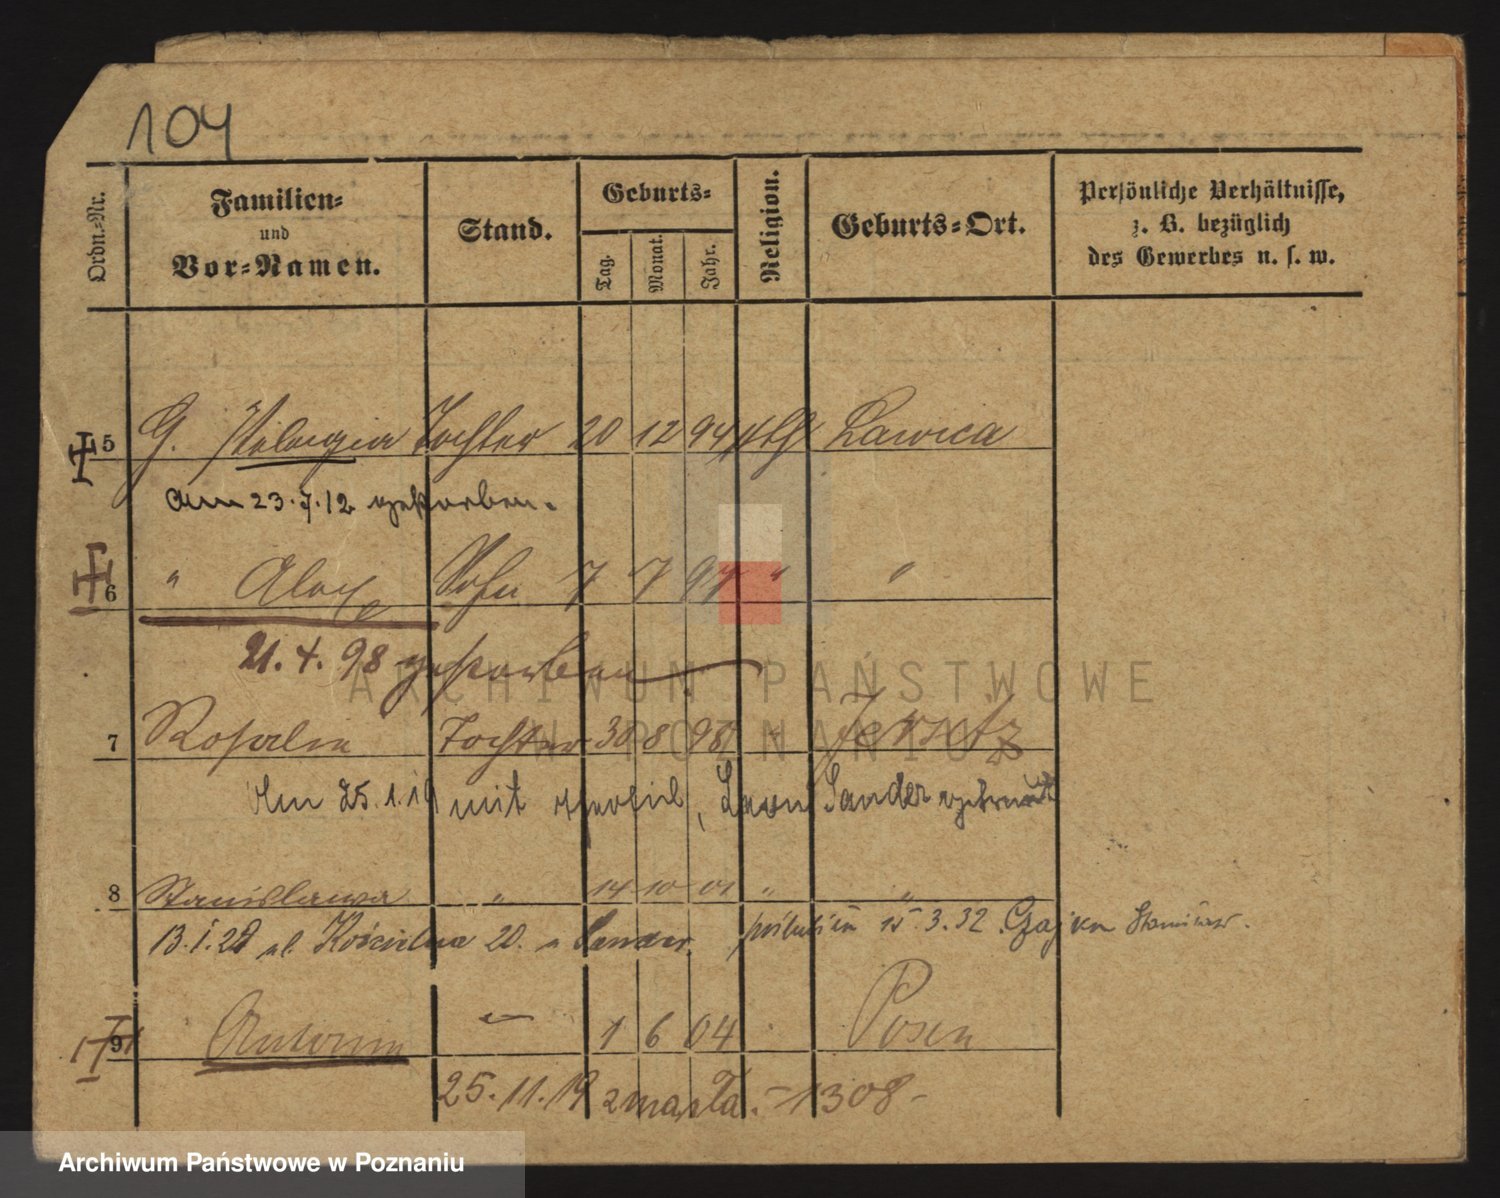 104
Ordn.-Nr.
Familien-
und
Vor-Namen.
Stand.
Geburts-
Tag.
Monat.
Jahr.
Religion.
Geburts-Ort.
Persönliche Verhältnisse,
z. B. bezüglich
des Gewerbes u. s. w.
5 G. Pelagia Tochter 20 12 94 kth Lawica
am 23.7.12 gestorben.
6 " Alex Sohn 7 7 97 " "
21. 4. 98 gestorben
7 Rosalie Tochter 30 8 98 " Jersitz
Am 25.1.19 mit Leon Sander getraut
8 Stanislawa " 14 10 01 " "
13.1.28 ul. Kościelna 20. Sander 15.3.32 Czajka
9 Antonin 1 6 04 Posen
25.11.19 zmarła. - 1308 -
ARCHIWUM PAŃSTWOWE
W POZNANIU
Archiwum Państwowe w Poznaniu